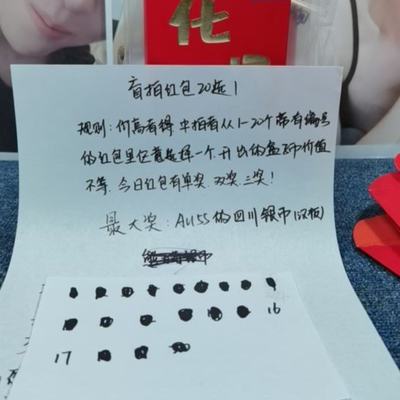 盲拍红包20选1
规则:价高者得 中拍者从1-20个带有编号
的红包里任意选择一个.开出的盒币价值
不等.今日红包有单奖.双奖.三奖!
最大奖:AU55的四川银币(汉板)
9
16
17